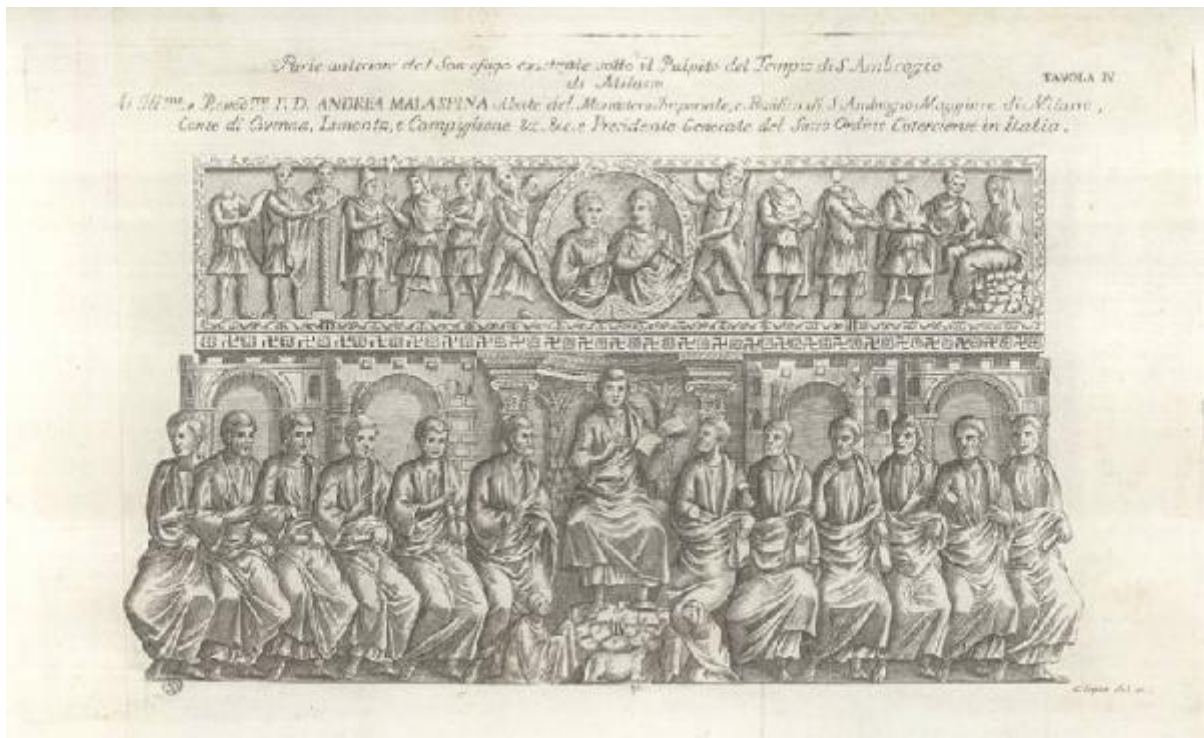 Parte anteriore del Sarcofago esistente sotto il Pulpito del Tempio di S. Ambrogio
di Milano
TAVOLA IV
ANDREA MALASPINA Abate del Monastero Imperiale, e Basilica di S. Ambrogio Maggiore di Milano,
Conte di Civenna, Limonta, e Campiglione &c. &c. e Presidente Generale del Sacro Ordine Cisterciense in Italia.